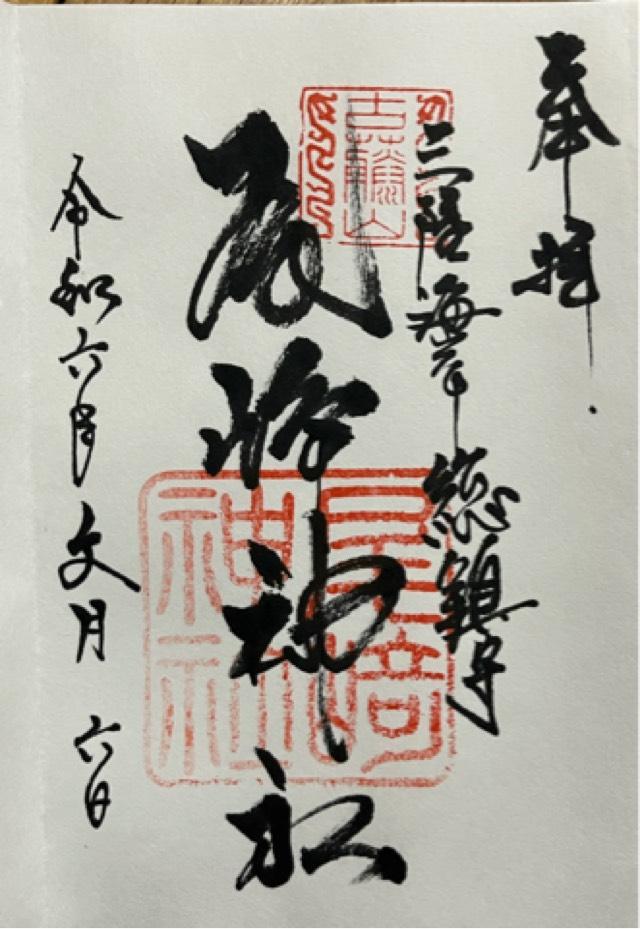 奉拝
三陸海岸総鎮守
尾崎神社
令和六年文月 六日
尾崎
神社